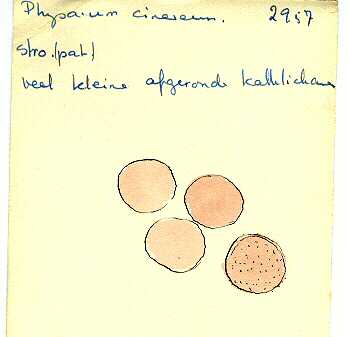 Physarum cinereum. 2957
stro.(pat)
veel kleine afgeronde kalklichamen